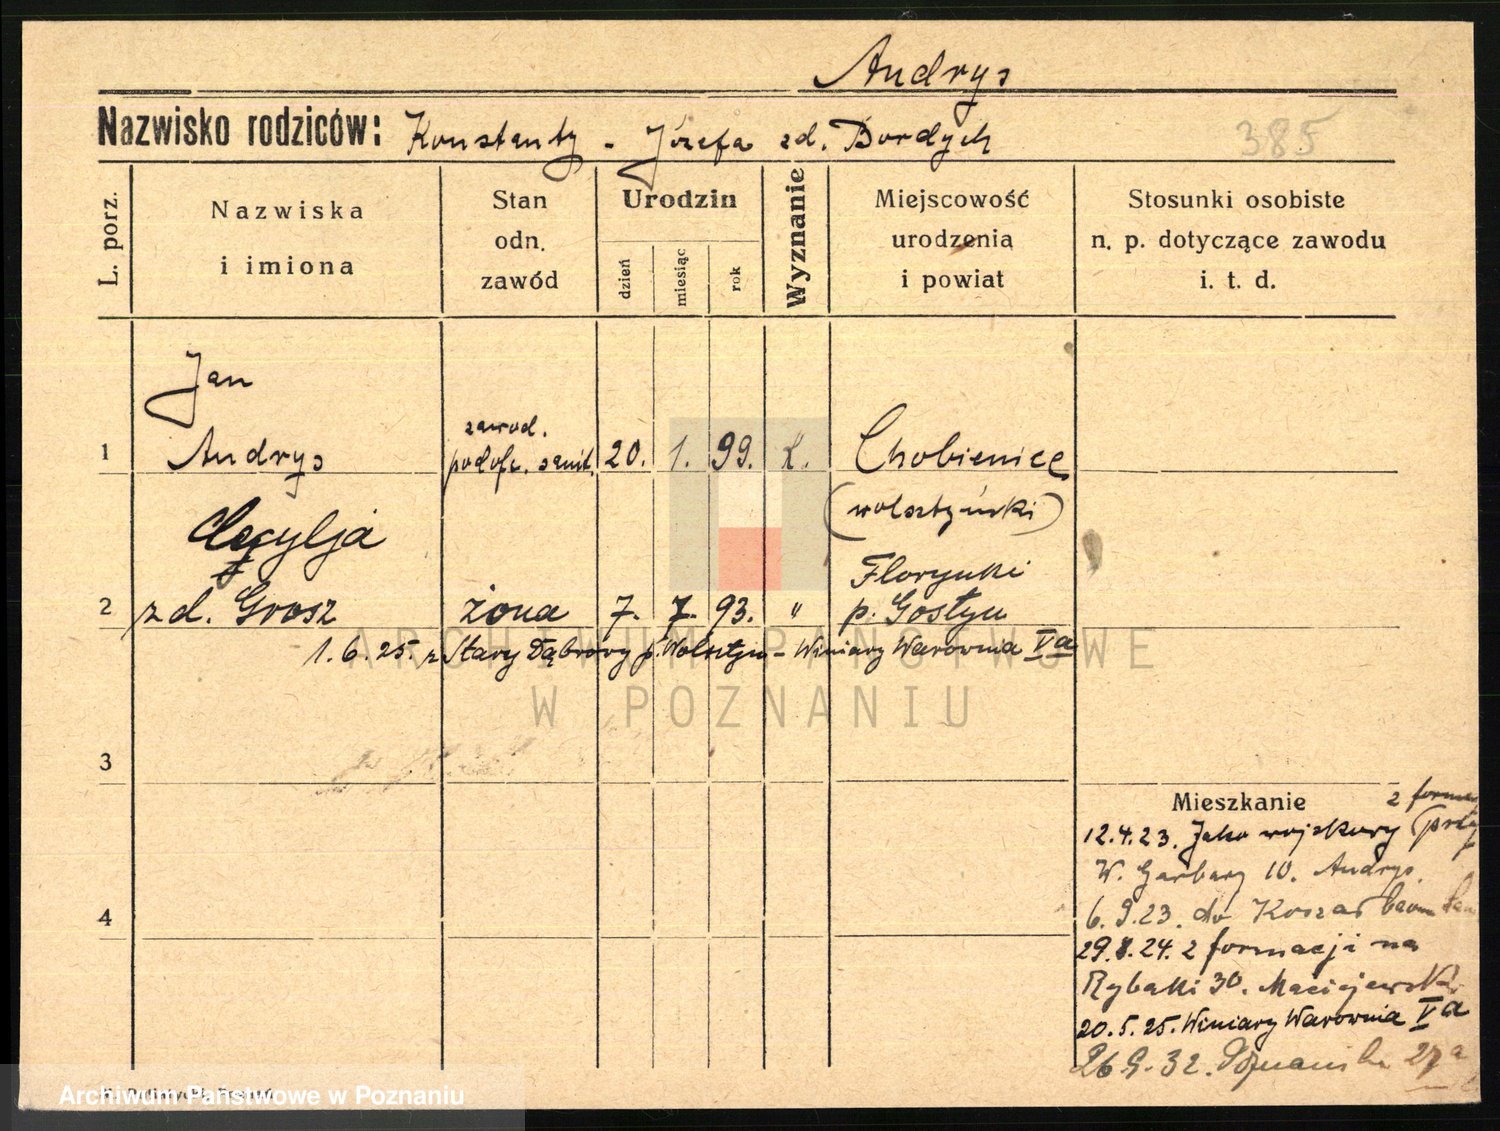 Andrys
Nazwisko rodziców: Konstanty - Józefa zd. Bordych
385
L. porz.
Nazwiska
i imiona
Stan
odn.
zawód
Urodzin
dzień
miesiąc
rok
Wyznanie
Miejscowość
urodzenia
i powiat
Stosunki osobiste
n. p. dotyczące zawodu
i. t. d.
Jan
zawod.
1 Andrys podofc. sanit. 20. 1. 99. k. Chobienice
(wolsztyński)
Cecylja
Florynki
2 zd. Grosz żona 7. 7. 93. " p. Gostyn
1.6.25. z Stary Dąbrowy p. Wolsztyn - Winiary Warownia Va
ARCHIWUM PAŃSTWOWE
W POZNANIU
3
Mieszkanie
z
12.4.23. Jako wojskowy
W. Garbary 10. Andrys.
4
6.9.23. do Koszar
29.8.24. z formacji na
Rybaki 30. Maciejewski
20.5.25. Winiary Warownia Va
26.9.32. 27a
Archiwum Państwowe w Poznaniu